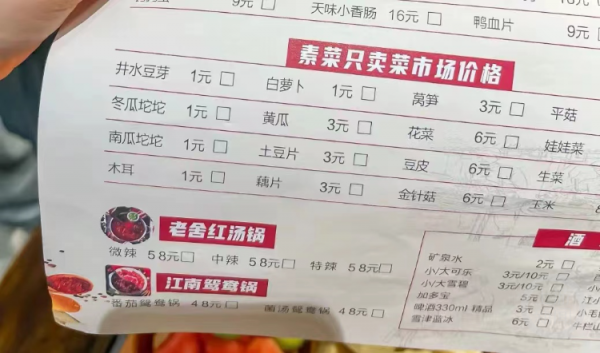 9元 天味小香肠 16元 鸭血片 9元
素菜只卖菜市场价格
井水豆芽 1元 白萝卜 1元 莴笋 3元 平菇
冬瓜坨坨 1元 黄瓜 3元 花菜 6元 娃娃菜
南瓜坨坨 1元 土豆片 3元 豆皮 6元 生菜
木耳 1元 藕片 3元 金针菇 6元 玉米
老舍红汤锅
微辣 58元 中辣 58元 特辣 58元
江南鸳鸯锅
番茄鸳鸯锅 48元 菌汤鸳鸯锅 48元
酒
矿泉水 2元
小/大可乐 3元/10元
小/大雪碧 3元/10元
加多宝 5元
啤酒330ml 精品 3元
雪津蓝冰 6元